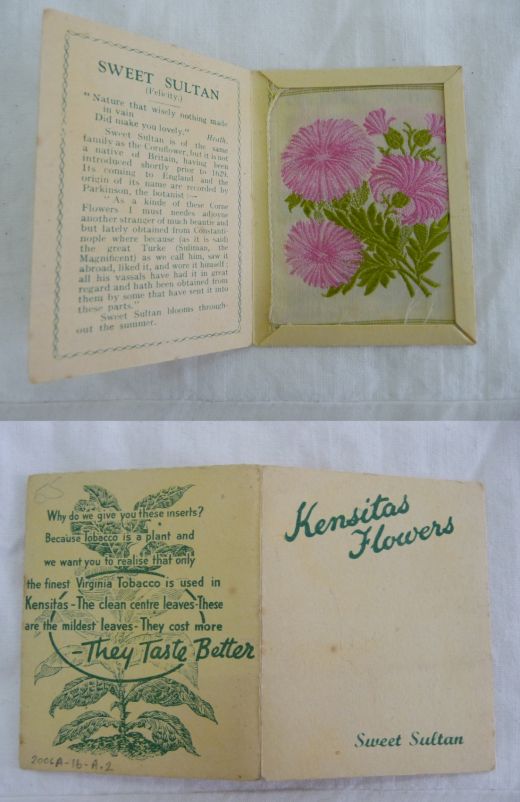 SWEET SULTAN
(Felicity.)
"Nature that wisely nothing made
in vain
Did make you lovely." Heath.
Sweet Sultan is of the same
family as the Cornflower, but it is not
a native of Britain, having been
introduced shortly prior to 1629.
Its coming to England and the
origin of its name are recorded by
Parkinson, the botanist :—
"As a kinde of these Corne
Flowers I must needes adjoyne
another stranger of much beautie and
but lately obtained from Constanti-
nople where because (as it is said)
the great Turke (Suliman, the
Magnificent) as we call him, saw it
abroad, liked it, and wore it himself ;
all his vassals have had it in great
regard and hath been obtained from
them by some that have sent it into
these parts."
Sweet Sultan blooms through-
out the summer.
Why do we give you these inserts?
Because Tobacco is a plant and
we want you to realise that only
the finest Virginia Tobacco is used in
Kensitas - The clean centre leaves - These
are the mildest leaves - They cost more
- They Taste Better
2006A-16-A.2
Kensitas
Flowers
Sweet Sultan